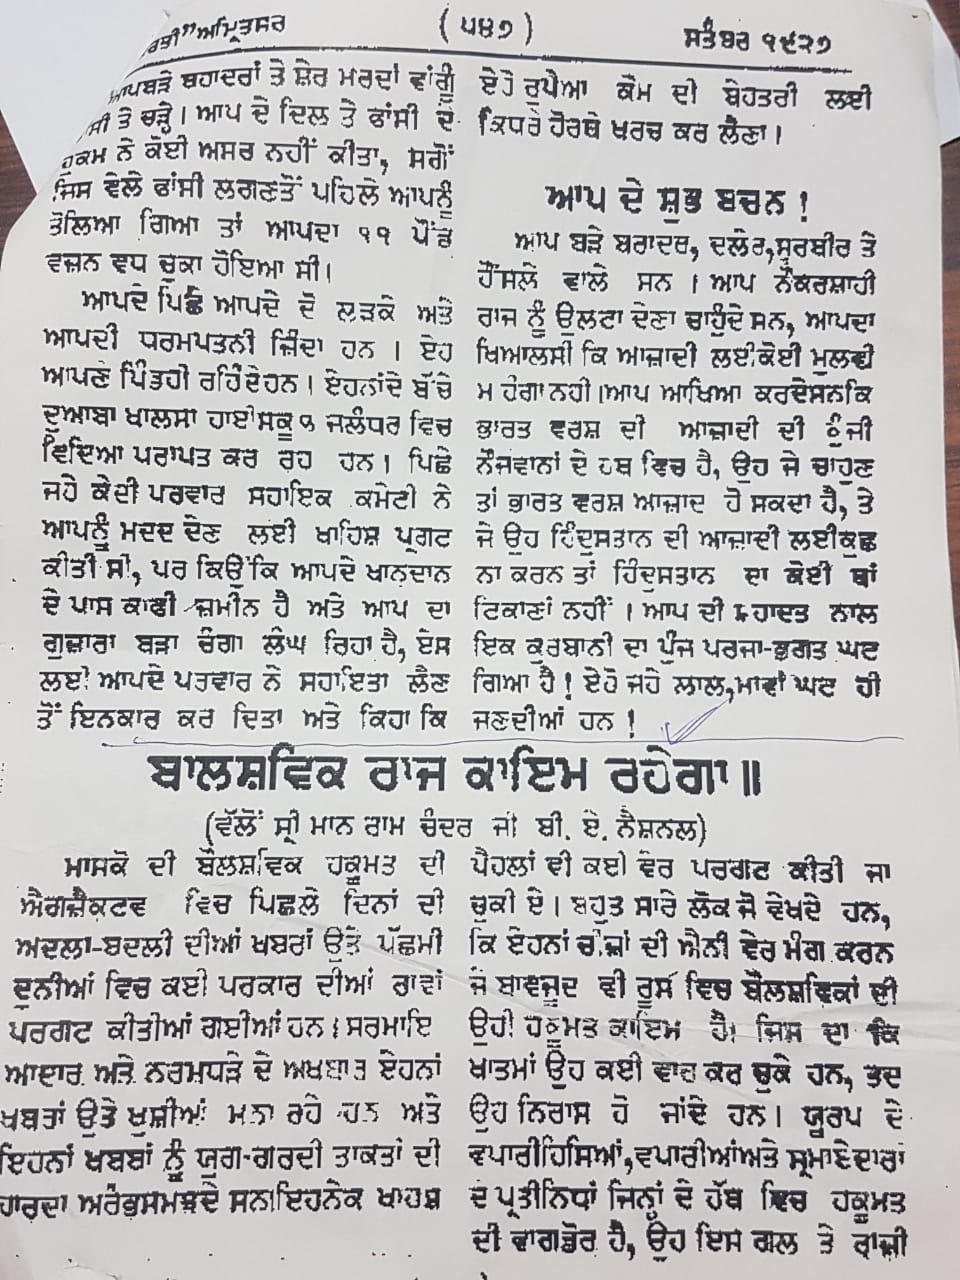 ਅਮ੍ਰਿਤਸਰ
( ੫੪੭ )
ਸਤੰਬਰ ੧੯੨੭
ਆਪਬੜੇ ਬਹਾਦਰਾਂ ਤੇ ਸ਼ੇਰ ਮਰਦਾਂ ਵਾਂਗੂੰ
ਤੇ ਚੜ੍ਹੇ। ਆਪ ਦੇ ਦਿਲ ਤੇ ਫਾਂਸੀ ਦੇ
ਹੁਕਮ ਨੇ ਕੋਈ ਅਸਰ ਨਹੀਂ ਕੀਤਾ, ਸਗੋਂ
ਜਿਸ ਵੇਲੇ ਫਾਂਸੀ ਲਗਣਤੋਂ ਪਹਿਲੇ ਆਪਨੂੰ
ਤੋਲਿਆ ਗਿਆ ਤਾਂ ਆਪਦਾ ੧੧ ਪੌਂਡ
ਵਜ਼ਨ ਵਧ ਚੁਕਾ ਹੋਇਆ ਸੀ।
ਆਪਦੇ ਪਿਛੇ ਆਪਦੇ ਦੋ ਲੜਕੇ ਅਤੇ
ਆਪਦੀ ਧਰਮਪਤਨੀ ਜ਼ਿੰਦਾ ਹਨ । ਏਹ
ਆਪਣੇ ਪਿੰਡਹੀ ਰਹਿੰਦੇਹਨ। ਏਹਨਾਂਦੇ ਬੱਚੇ
ਦੁਆਬਾ ਖਾਲਸਾ ਹਾਈਸਕੂਲ ਜਲੰਧਰ ਵਿਚ
ਵਿੱਦਿਆ ਪਰਾਪਤ ਕਰ ਰਹੇ ਹਨ। ਪਿਛੇ
ਜਹੇ ਕੈਦੀ ਪਰਵਾਰ ਸਹਾਇਕ ਕਮੇਟੀ ਨੇ
ਆਪਨੂੰ ਮਦਦ ਦੇਣ ਲਈ ਖਾਹਿਸ਼ ਪ੍ਰਗਟ
ਕੀਤੀ ਸੀ, ਪਰ ਕਿਉਂਕਿ ਆਪਦੇ ਖਾਨਦਾਨ
ਦੇ ਪਾਸ ਕਾਫੀ ਜ਼ਮੀਨ ਹੈ ਅਤੇ ਆਪ ਦਾ
ਗੁਜ਼ਾਰਾ ਬੜਾ ਚੰਗਾ ਲੰਘ ਰਿਹਾ ਹੈ, ਏਸ
ਲਈ ਆਪਦੇ ਪਰਵਾਰ ਨੇ ਸਹਾਇਤਾ ਲੈਣ
ਤੋਂ ਇਨਕਾਰ ਕਰ ਦਿਤਾ ਅਤੇ ਕਿਹਾ ਕਿ
ਏਹੋ ਰੁਪੈਆ ਕੌਮ ਦੀ ਬੇਹਤਰੀ ਲਈ
ਕਿਧਰੇ ਹੋਰਥੇ ਖਰਚ ਕਰ ਲੈਣਾ।
ਆਪ ਦੇ ਸ਼ੁਭ ਬਚਨ !
ਆਪ ਬੜੇ ਬਰਾਦਰ, ਦਲੇਰ,ਸੂਰਬੀਰ ਤੇ
ਹੌਂਸਲੇ ਵਾਲੇ ਸਨ । ਆਪ ਨੌਕਰਸ਼ਾਹੀ
ਰਾਜ ਨੂੰ ਉਲਟਾ ਦੇਣਾ ਚਾਹੁੰਦੇ ਸਨ, ਆਪਦਾ
ਖਿਆਲਸੀ ਕਿ ਆਜ਼ਾਦੀ ਲਈਕੋਈ ਮੁਲਵੀ
ਮ ਹੰਗਾ ਨਹੀ।ਆਪ ਆਖਿਆ ਕਰਦੇਸਨਕਿ
ਭਾਰਤ ਵਰਸ਼ ਦੀ ਆਜ਼ਾਦੀ ਦੀ ਕੁੰਜੀ
ਨੌਜਵਾਨਾਂ ਦੇ ਹਥ ਵਿਚ ਹੈ, ਉਹ ਜੇ ਚਾਹੁਣ
ਤਾਂ ਭਾਰਤ ਵਰਸ਼ ਆਜ਼ਾਦ ਹੋ ਸਕਦਾ ਹੈ, ਤੇ
ਜੇ ਉਹ ਹਿੰਦੁਸਤਾਨ ਦੀ ਆਜ਼ਾਦੀ ਲਈਕੁਛ
ਨਾ ਕਰਨ ਤਾਂ ਹਿੰਦੁਸਤਾਨ ਦਾ ਕੋਈ ਥਾਂ
ਟਿਕਾਣਾਂ ਨਹੀਂ । ਆਪ ਦੀ ਸ਼ਹਾਦਤ ਨਾਲ
ਇਕ ਕੁਰਬਾਨੀ ਦਾ ਪੁੰਜ ਪਰਜਾ-ਭਗਤ ਘਟ
ਗਿਆ ਹੈ ! ਏਹੋ ਜਹੇ ਲਾਲ,ਮਾਵਾਂ ਘਟ ਹੀ
ਜਣਦੀਆਂ ਹਨ !
ਬਾਲਸ਼ਵਿਕ ਰਾਜ ਕਾਇਮ ਰਹੇਗਾ॥
(ਵੱਲੋਂ ਸ੍ਰੀ ਮਾਨ ਰਾਮ ਚੰਦਰ ਜੀ ਬੀ. ਏ. ਨੈਸ਼ਨਲ)
ਮਾਸਕੋ ਦੀ ਬੌਲਸ਼ਵਿਕ ਹਕੂਮਤ ਦੀ
ਐਗਜ਼ੈਕਟਵ ਵਿਚ ਪਿਛਲੇ ਦਿਨਾਂ ਦੀ
ਅਦਲਾ-ਬਦਲੀ ਦੀਆਂ ਖਬਰਾਂ ਉਤੇ ਪੱਛਮੀ
ਦੁਨੀਆਂ ਵਿਚ ਕਈ ਪਰਕਾਰ ਦੀਆਂ ਰਾਵਾਂ
ਪਰਗਟ ਕੀਤੀਆਂ ਗਈਆਂ ਹਨ। ਸਰਮਾਇ
ਆਦਾਰ ਅਤੇ ਨਰਮਧੜੇ ਦੇ ਅਖਬਾਰ ਏਹਨਾਂ
ਖਬਰਾਂ ਉਤੇ ਖੁਸ਼ੀਆਂ ਮਨਾ ਰਹੇ ਹਨ ਅਤੇ
ਇਹਨਾਂ ਖਬਬਾਂ ਨੂੰ ਯੁਗ-ਗਰਦੀ ਤਾਕਤਾਂ ਦੀ
ਹਾਰਦਾ ਅਰੰਭਸਮਝਦੇ ਸਨ।ਇਹਨੇਕ ਖਾਹਸ਼
ਪੈਹਲਾਂ ਵੀ ਕਈ ਵੇਰ ਪਰਗਟ ਕੀਤੀ ਜਾ
ਚੁਕੀ ਏ। ਬਹੁਤ ਸਾਰੇ ਲੋਕ ਜੋ ਵੇਖਦੇ ਹਨ,
ਕਿ ਏਹਨਾਂ ਚੀਜ਼ਾਂ ਦੀ ਐਨੀ ਵੇਰ ਮੰਗ ਕਰਨ
ਜੇ ਬਾਵਜੂਦ ਵੀ ਰੂਸ ਵਿਚ ਬੌਲਸ਼ਵਿਕਾਂ ਦੀ
ਉਹੀ ਹਕੂਮਤ ਕਾਇਮ ਹੈ। ਜਿਸ ਦਾ ਕਿ
ਖਾਤਮਾਂ ਉਹ ਕਈ ਵਾਰ ਕਰ ਚੁਕੇ ਹਨ, ਤਦ
ਉਹ ਨਿਰਾਸ ਹੋ ਜਾਂਦੇ ਹਨ। ਯੂਰਪ ਦੇ
ਵਪਾਰੀਹਿਸਿਆਂ,ਵਪਾਰੀਆਂਅਤੇ ਸ੍ਰਮਾਏਦਾਰਾਂ
ਦੇ ਪ੍ਰਤੀਨਿਧਾਂ ਜਿਨ੍ਹਾਂ ਦੇ ਹੱਥ ਵਿਚ ਹਕੂਮਤ
ਦੀ ਵਾਗਡੋਰ ਹੈ, ਉਹ ਇਸ ਗਲ ਤੇ ਰਾਜ਼ੀ